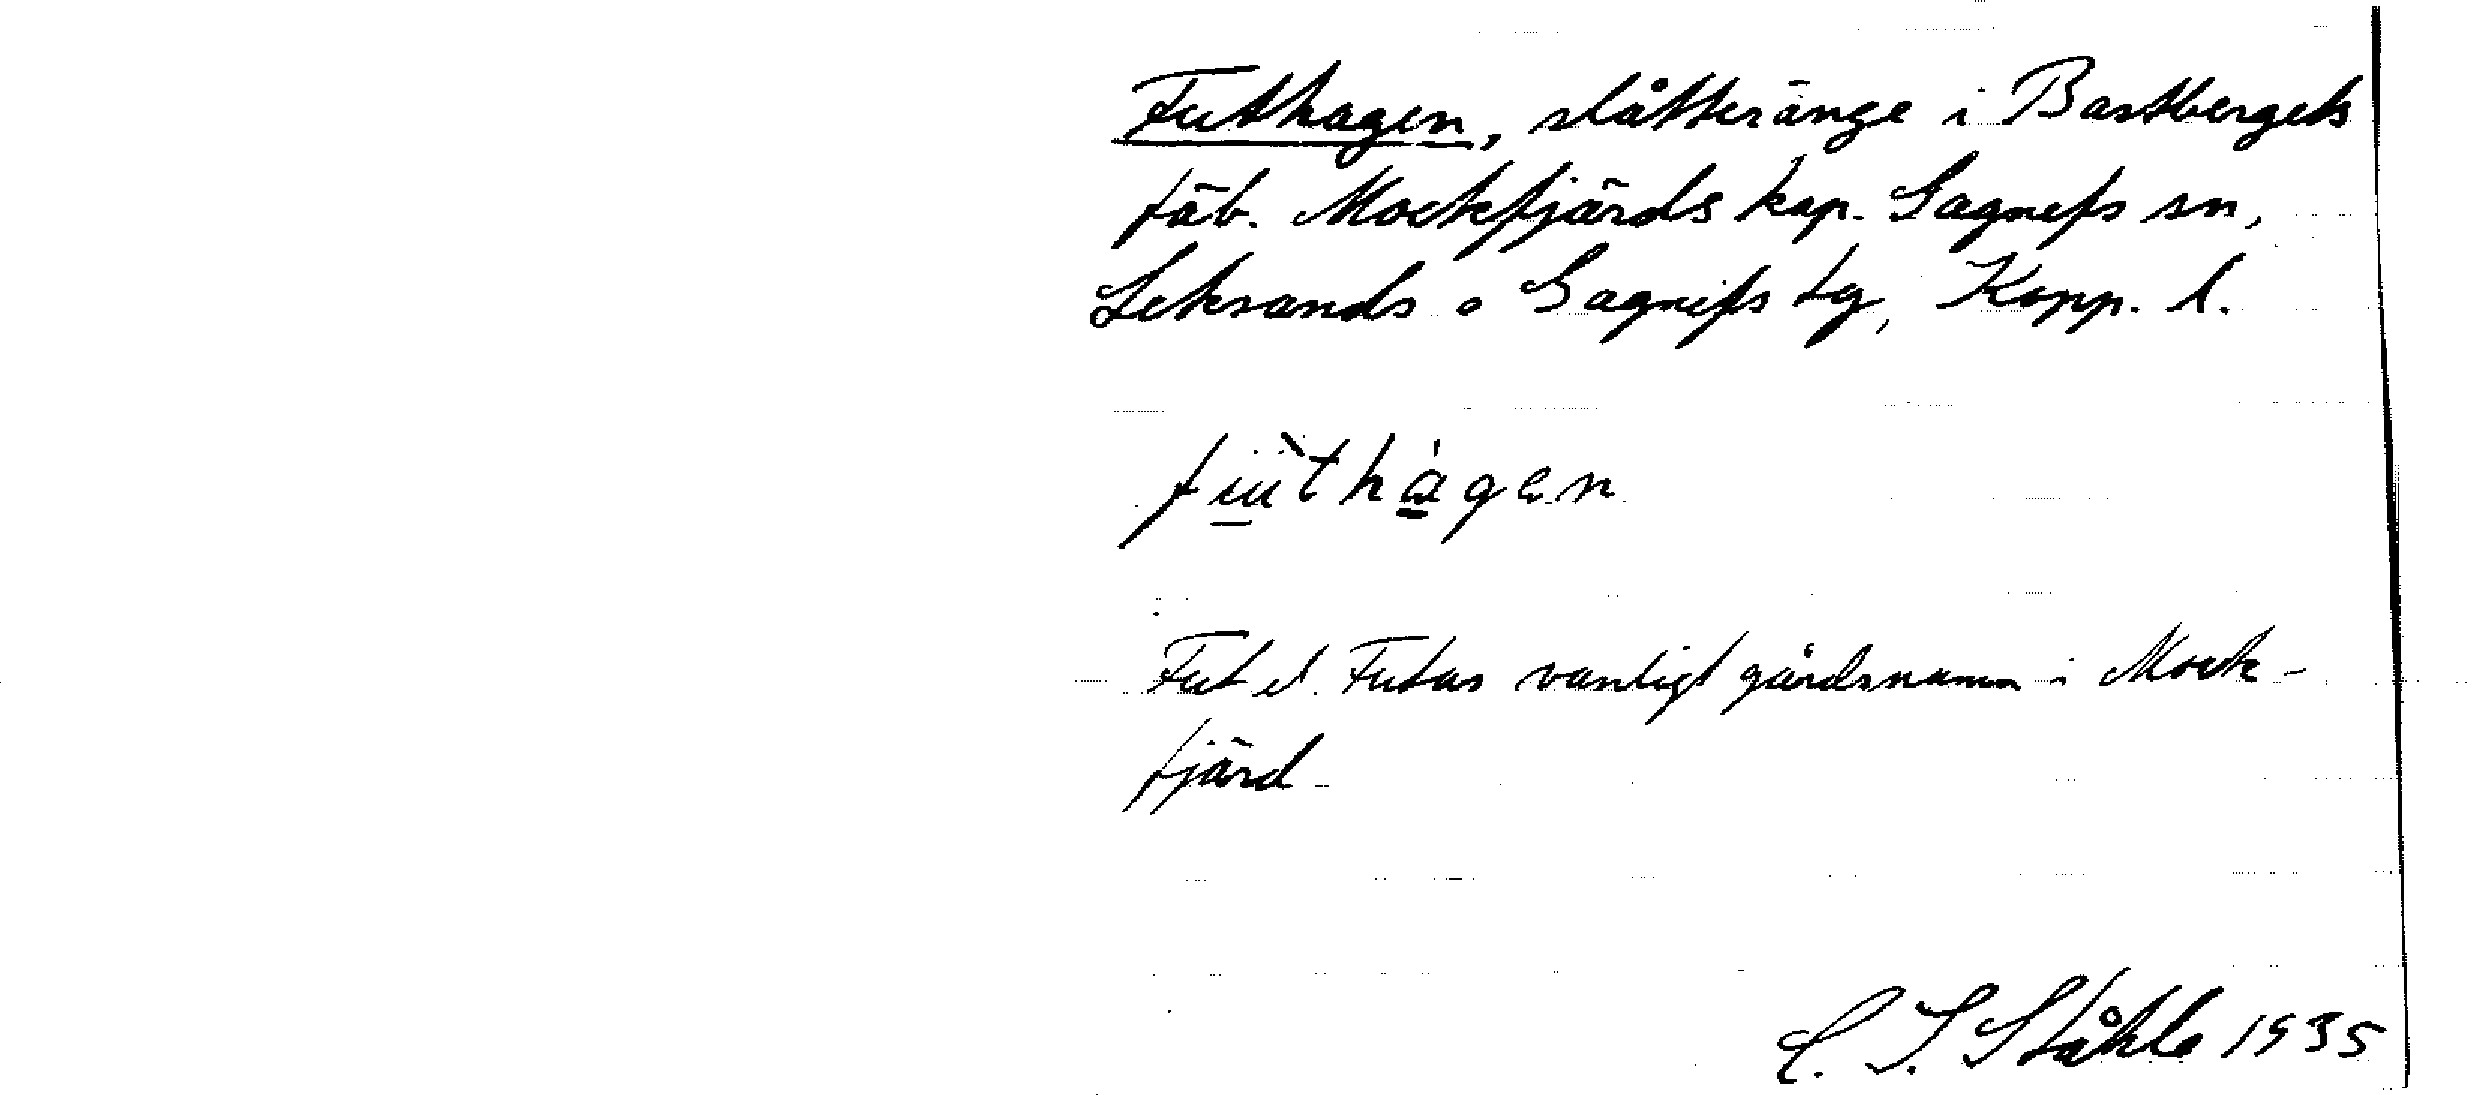 Futhagen, slåtteränge i Bastbergets
fäb. Mockfjärds kap. Gagnefs sn,
Leksands o Gagnefs tg, Kopp. l.
fùthàgen
Fut el. Futas vanligt gårdsnamn i Mock-
fjärd
C. I. Ståhle 1935